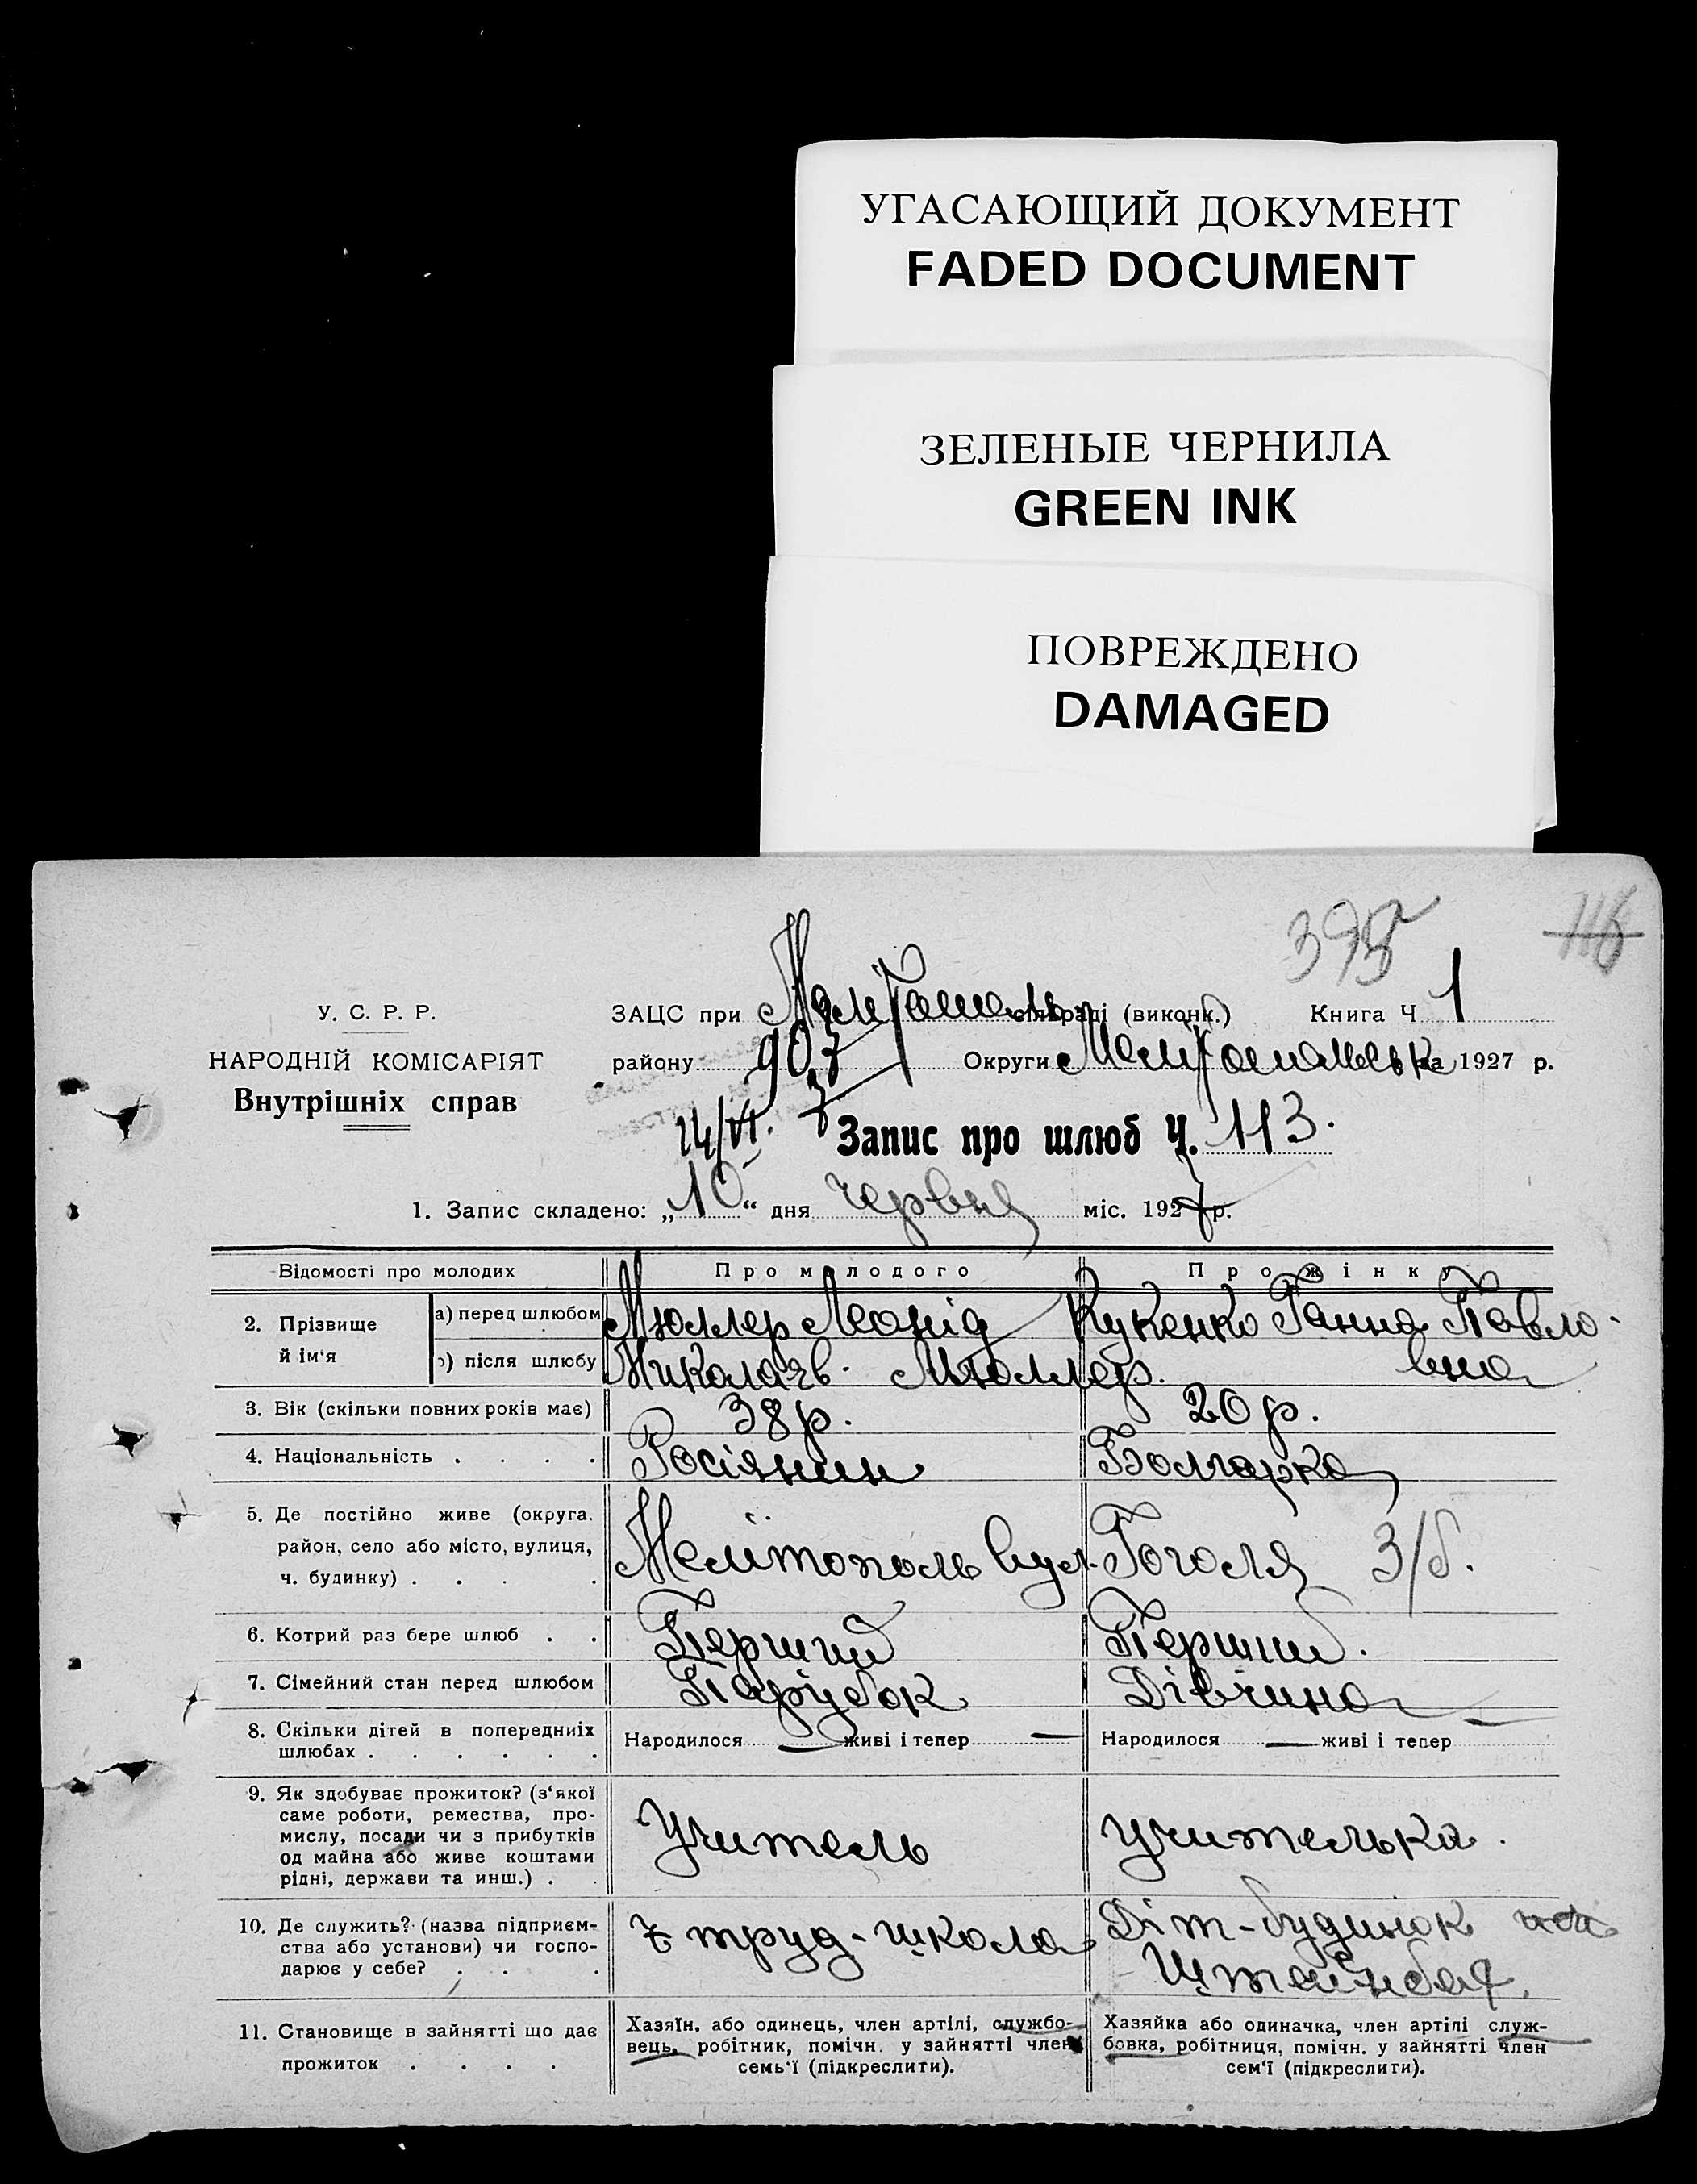 УГАСАЮЩИЙ ДОКУМЕНТ
FADED DOCUMENT
ЗЕЛЕНЫЕ ЧЕРНИЛА
GREEN INK
ПОВРЕЖДЕНО
DAMAGED
395 116
У. С. Р. Р. ЗАЦС при сільраді (виконк.) Книга Ч. 1
НАРОДНІЙ КОМІСАРІЯТ району 907 Округи на 1927 р.
Внутрішніх справ
24/VI. Запис про шлюб Ч. 113.
1. Запис складено: „10“ дня червня міс. 1927 р.
Відомості про молодих Про молодого Про жінку
2. Прізвище й ім‘я
а) перед шлюбом Мюллер Леонід Кукенко Ганна Павло-
б) після шлюбу Миколаєв. Мюллер. вна
3. Вік (скільки повних років має) 38 р. 20 р.
4. Національність . . . . Росіянин Болгарка
5. Де постійно живе (округа,
район, село або місто, вулиця, Мелітополь вул. Гоголя 3/б.
ч. будинку) . . . .
6. Котрий раз бере шлюб . . Перший Перший.
7. Сімейний стан перед шлюбом Парубок Дівчина
8. Скільки дітей в попередниіх Народилося — живі і тепер — Народилося — живі і тепер —
шлюбах . . . . . .
9. Як здобуває прожиток? (з‘якої
саме роботи, ремества, про-
мислу, посади чи з прибутків Учитель учителька.
од майна або живе коштами
рідні, держави та инш.) . .
10. Де служить? (назва підприєм- 7 труд-школа Діт-будинок
ства або установи) чи госпо-
дарює у себе? . . .
11. Становище в зайнятті що дає
прожиток . . . .
Хазяїн, або одинець, член артілі, службо-
вець, робітник, помічн. у зайнятті член
семь‘ї (підкреслити).
Хазяйка або одиначка, член артілі служ-
бовка, робітниця, помічн. у зайнятті член
сем‘ї (підкреслити).